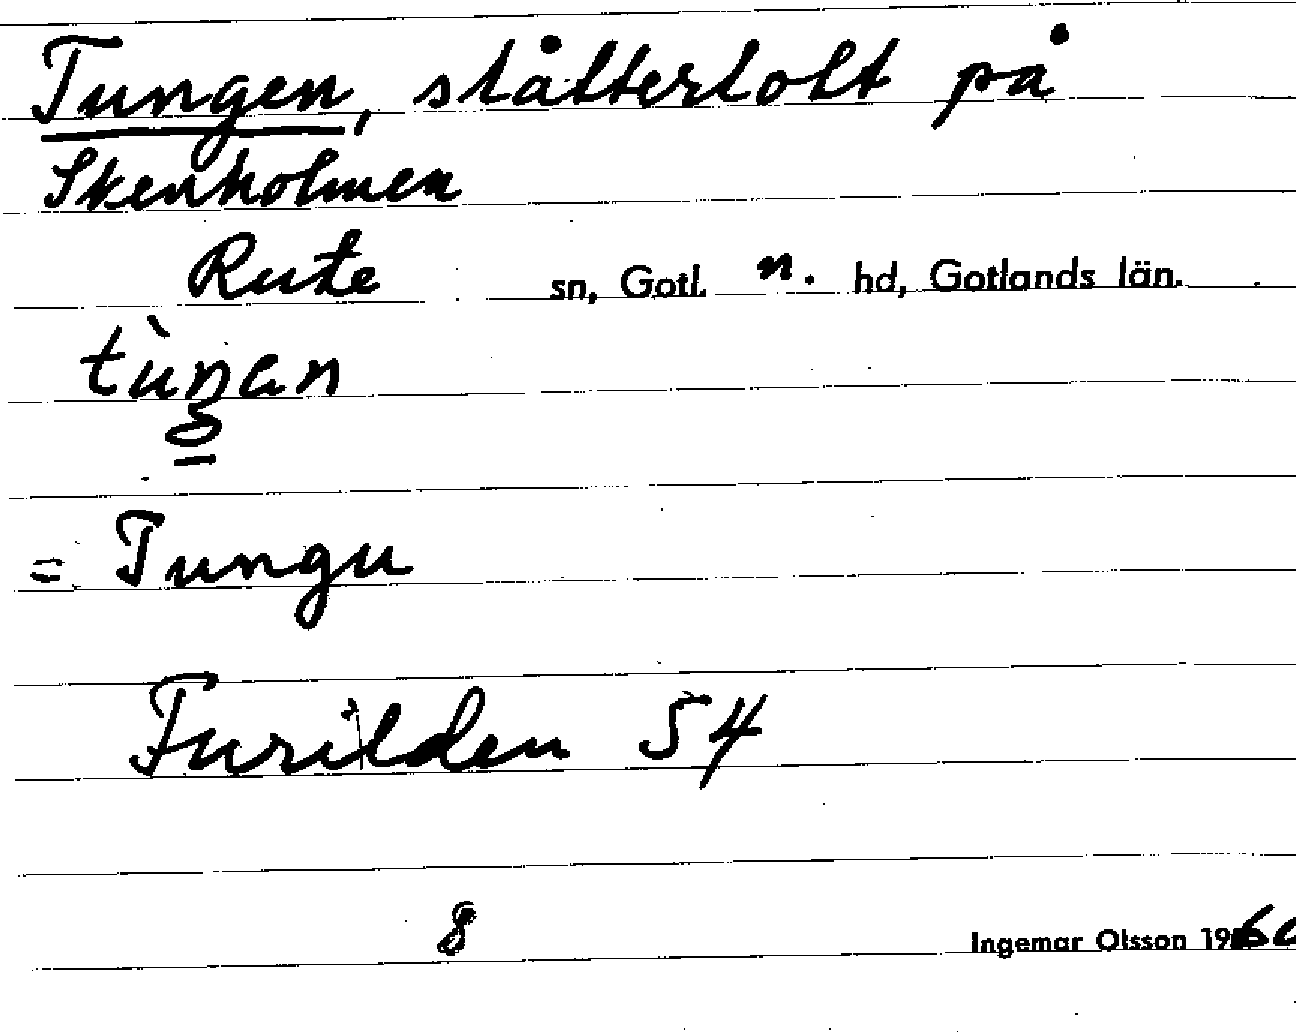 Tungen, slåtterlott på
Skenholmen
Rute sn, Gotl. n. hd, Gotlands län.
= Tungu
Furilden 54
8
Ingemar Olsson 1960